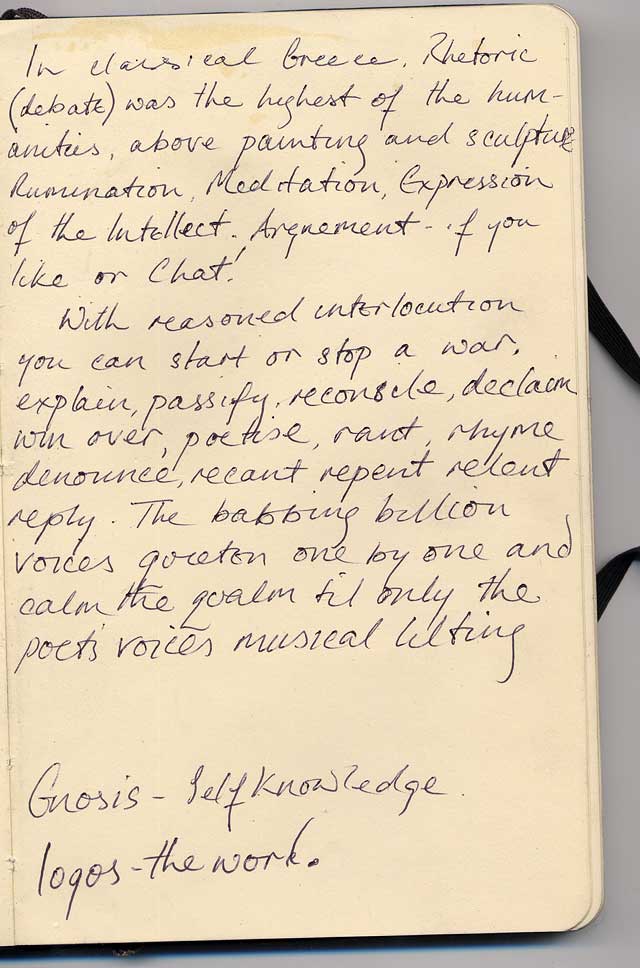 In classical Greece, Rhetoric
(debate) was the highest of the hum-
anities, above painting and sculpture
Rumination, Meditation, Expression
of the Intellect. Arguement - if you
like or Chat!
With reasoned interlocution
you can start or stop a war,
explain, passify, reconscile, declaim
win over, poetise, rant, rhyme
denounce, recant repent relent
reply. The babbing billion
voices quieton one by one and
calm the qualm til only the
poets voices musical lilting
Gnosis - Self Knowledge.
logos - the work.